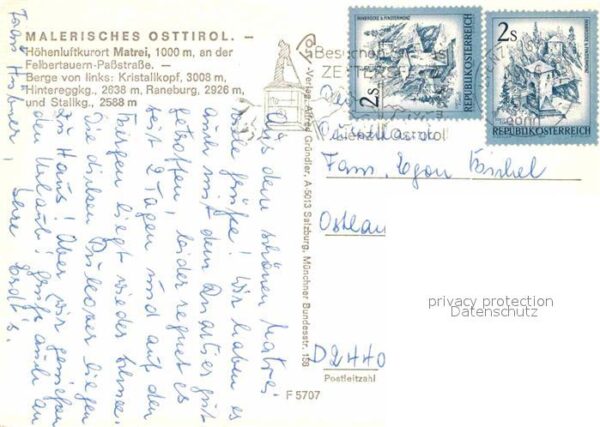 MALERISCHES OSTTIROL. —
Höhenluftkurort Matrei, 1000 m, an der
Felbertauern-Paßstraße. —
Berge von links: Kristallkopf, 3008 m,
Hintereggkg., 2638 m, Raneburg, 2926 m,
und Stallkg., 2588 m
Aus dem schönen Matrei
viele Grüße! Wir haben es
auch mit dem Quartier gut
getroffen, leider regnet es
seit 2 Tagen und auf den
Bergen liegt wieder Schnee.
Die dicken Pullover liegen
zu Haus! Aber wir genießen
den Urlaub! Grüße auch an
Ihre
Verlag Alfred Gründler, A 5013 Salzburg, Münchner Bundesstr. 158
F 5707
Besuchen
2s
REPUBLIK ÖSTERREICH
2s
REPUBLIK ÖSTERREICH
9900
Lienz Osttirol
Fam. Egon
D 2440
Postleitzahl
privacy protection
Datenschutz